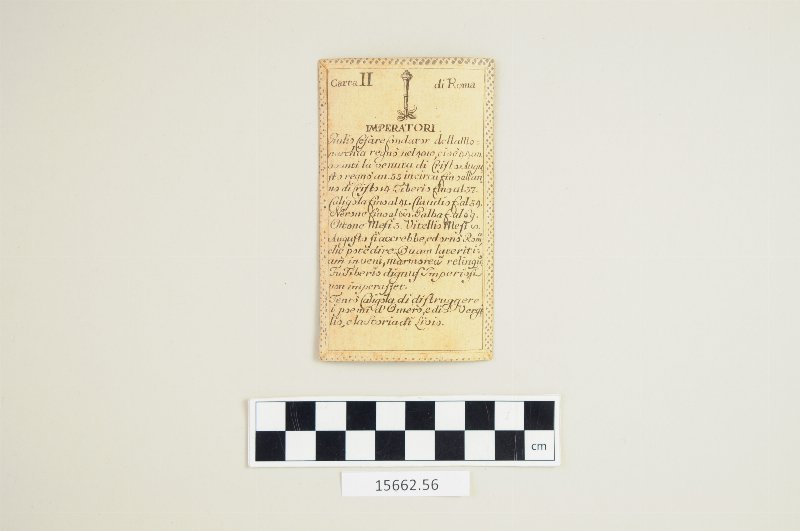 Carta II di Roma
IMPERATORI
Giulio Cesare fondator della Mo-
narchia regnò nel
avanti la venuta di Cristo Augu
sto regnò an. 55 in circa fin all'an
no di Cristo 14 Tiberio fino al 37.
Caligola fino al 41. Claudio f. al 54.
Nerone fino al Galba f. al 69.
Ottone Mesi 3. Vitellio Mesi
Augusto si accrebbe, ed ornò Rom̃
che potè dire. Quam lateriti-
am inveni, marmoreã relinquõ
Fu Tiberio dignus Imperio, si
non imperasset.
Tentò Caligola di distruggere
i poemi d'Omero, e di Vergi
lio, e la storia di Livio.
cm
15662.56